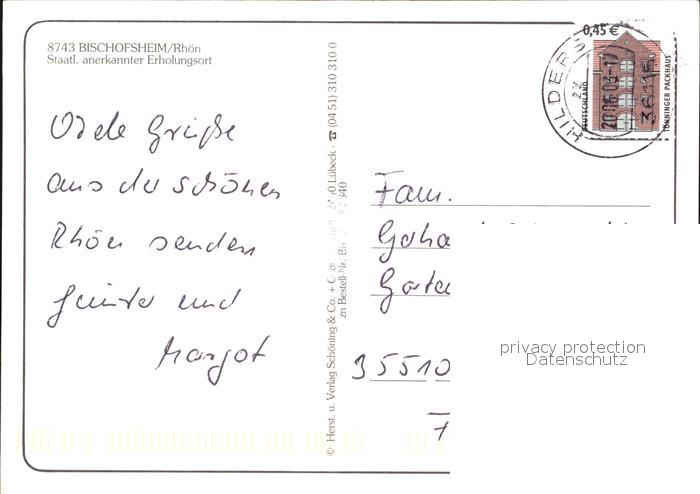 8743 BISCHOFSHEIM/Rhön
Staatl. anerkannter Erholungsort
Viele Grüße
aus der schönen
Rhön senden
Günter und
Margot
© Herst. u. Verlag Schöning & Co. + Lübeck · ☎ (04 51) 310 310 0
zu Bestell-Nr.
0,45 €
DEUTSCHLAND
TÖNNINGER PACKHAUS
HILDERS
20.06.03-17
36115
Fam.
35510
privacy protection
Datenschutz